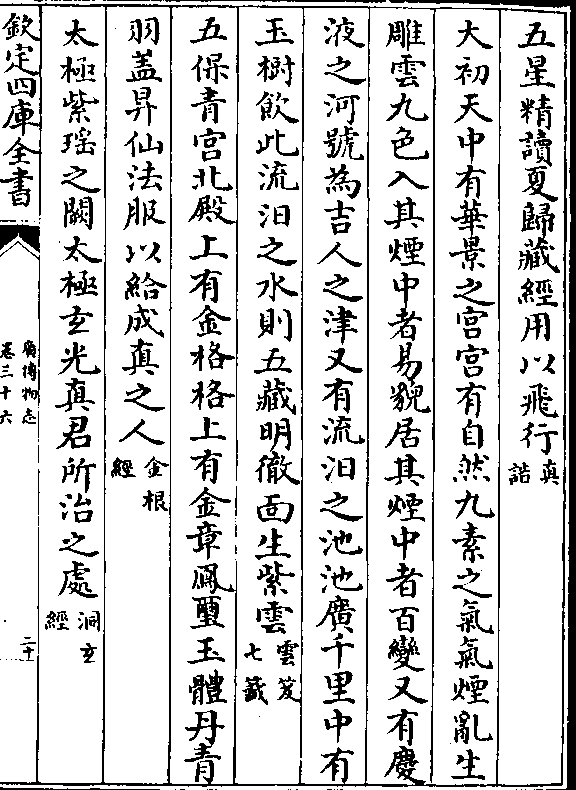 五星精讀夏歸藏經用以飛行真誥
大初天中有華景之宫宫有自然九素之氣氣煙亂生
雕雲九色入其煙中者易貌居其煙中者百變又有慶
液之河號為吉人之津又有流汨之池池廣千里中有
玉樹飲此流汨之水則五藏明徹面生紫雲雲笈七籤
五保青宫北殿上有金格格上有金章鳳璽玉體丹青
羽蓋昇仙法服以給成真之人金根經
太極紫瑶之闕太極玄光真君所治之處洞玄經
欽定四庫全書
廣博物志
卷三十六
二十